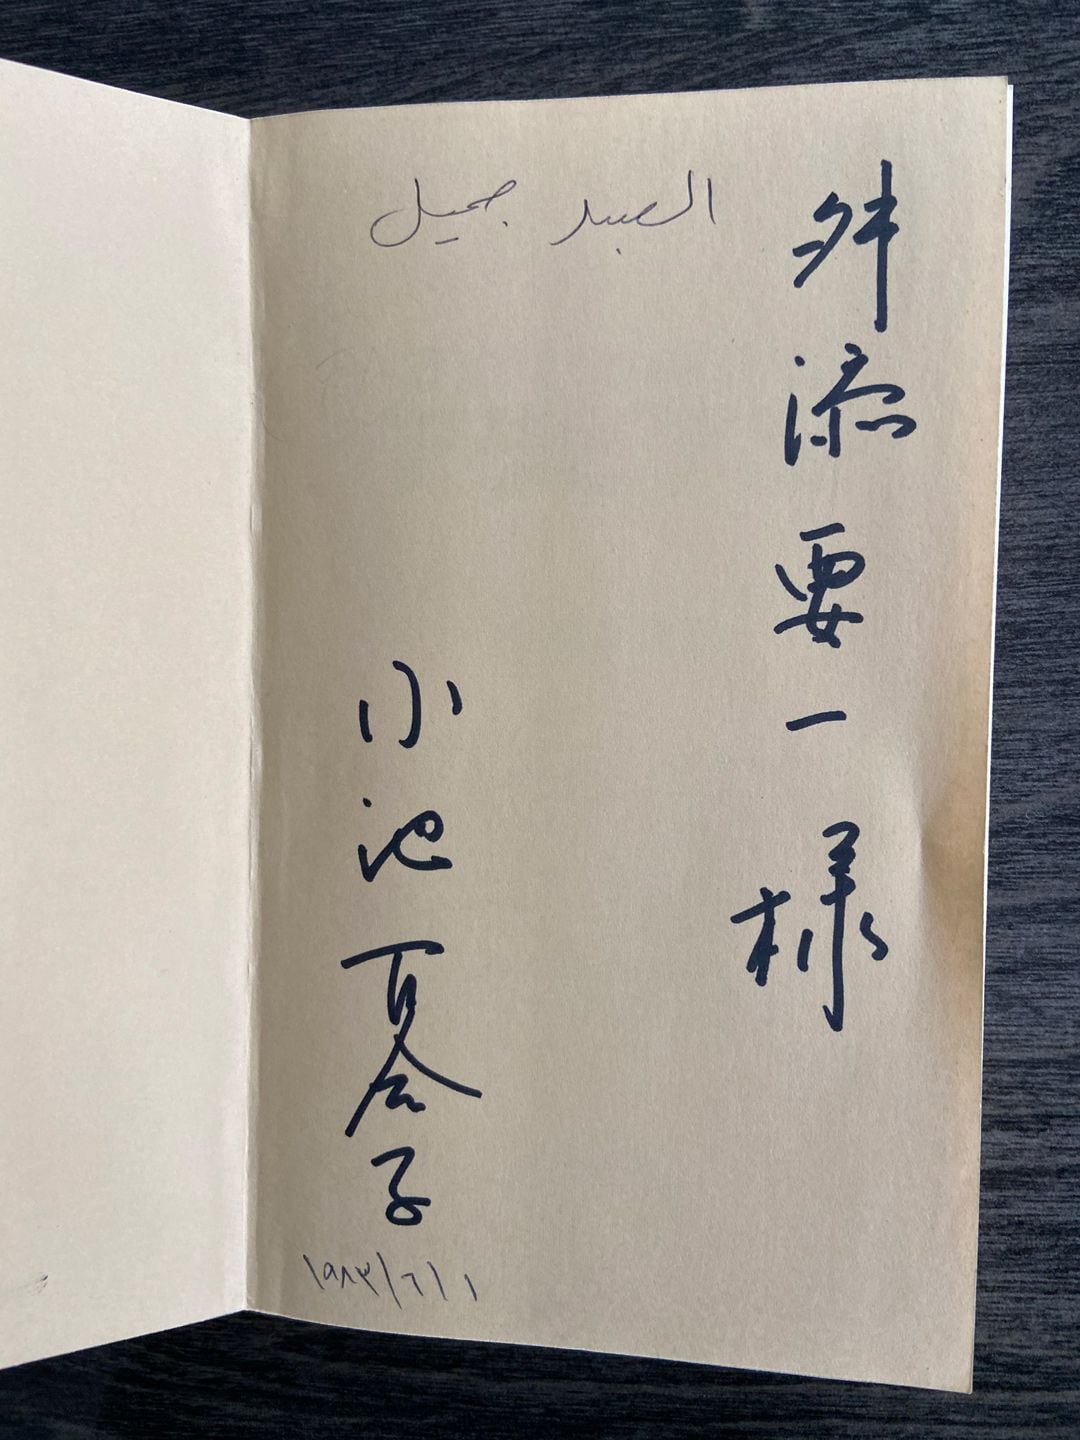 舛添要一様
الصبر جميل
小池百合子
١٩٨٣/٦/١